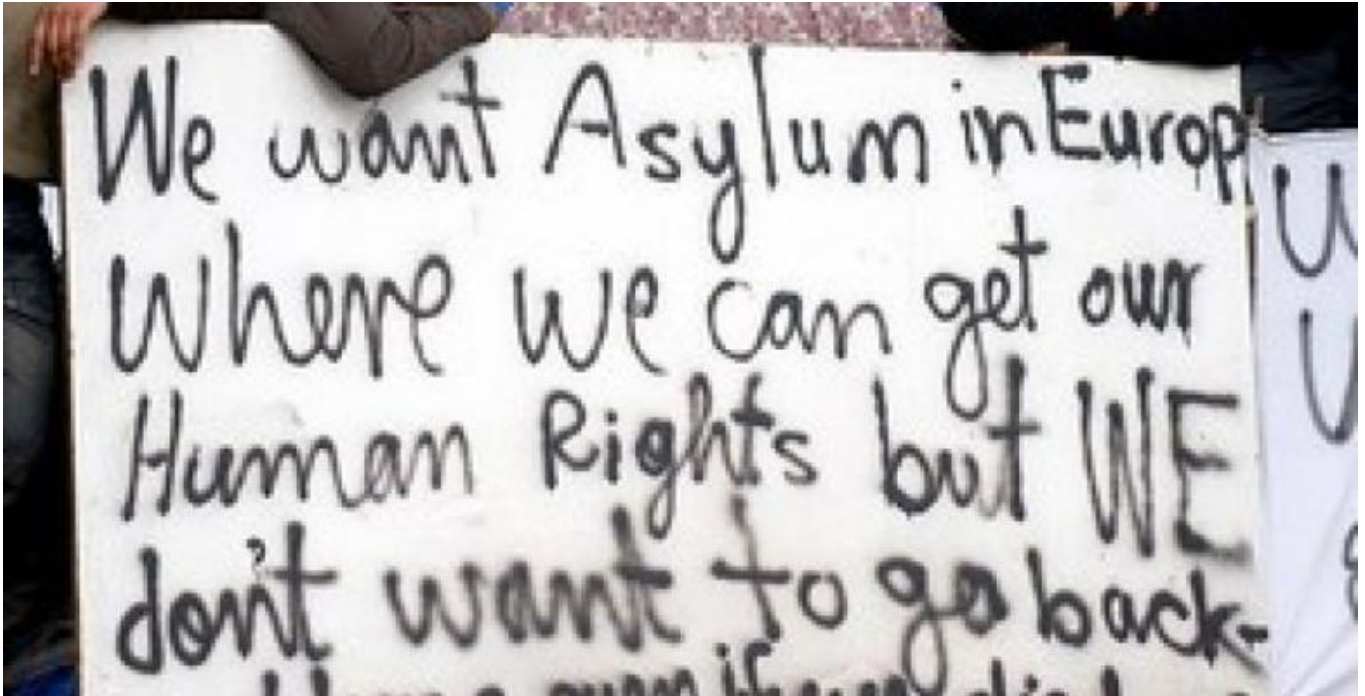 We want Asylum in Europ
Where we can get our
Human Rights but WE
don't want to go back-